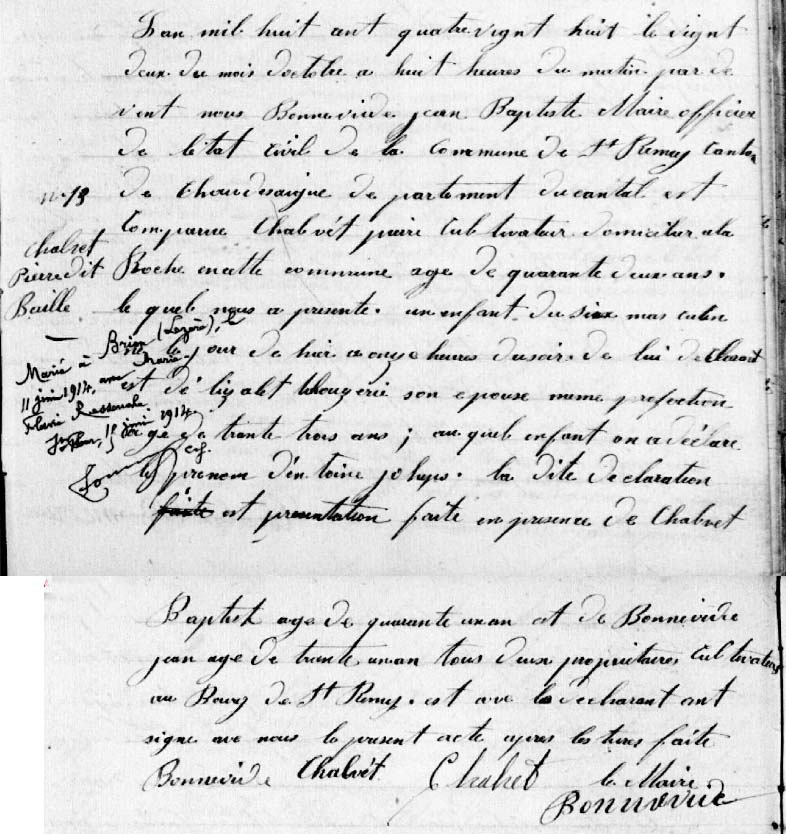 L'an mil huit cent quatre vignt huit le vignt
deux du mois doctobre a huit heures du matin par de
vent nous Bonnevide jean Baptiste Maire officier
de letat civil de la Commune de St Remy Canton
de Choudesaigue de partement ducantal est
Comparue Chalvet piaire Cultivateur domicilier ala
Roche encette commune age de quarante deux ans.
le quel nous a presente. un enfant du sixe mas culin
le jour de hier a onze heures dusoir de lui declarant
est de son epouse meme profection
age de trante trois ans ; au quel enfant on a déclare
les prenom d'entoine johseps. la dite declaration
faite est presentation faite en presence de Chalvet
n. 13
Chalvet
Pierre dit
Baille
Marié à Brion (Lozère), le
11 juin 1914, avec Marie
Flavie
11 juin 1914.
Baptist age de quarante unan et de Bonnevide
jean age de trante unan tous deux propriétaires Cultivateurs
au Bourg de St Remy. est ave le declarant ont
signe ave nous le present acte apres lectures faite
Bonnevide Chalvét Chalvet le Maire
Bonnevide